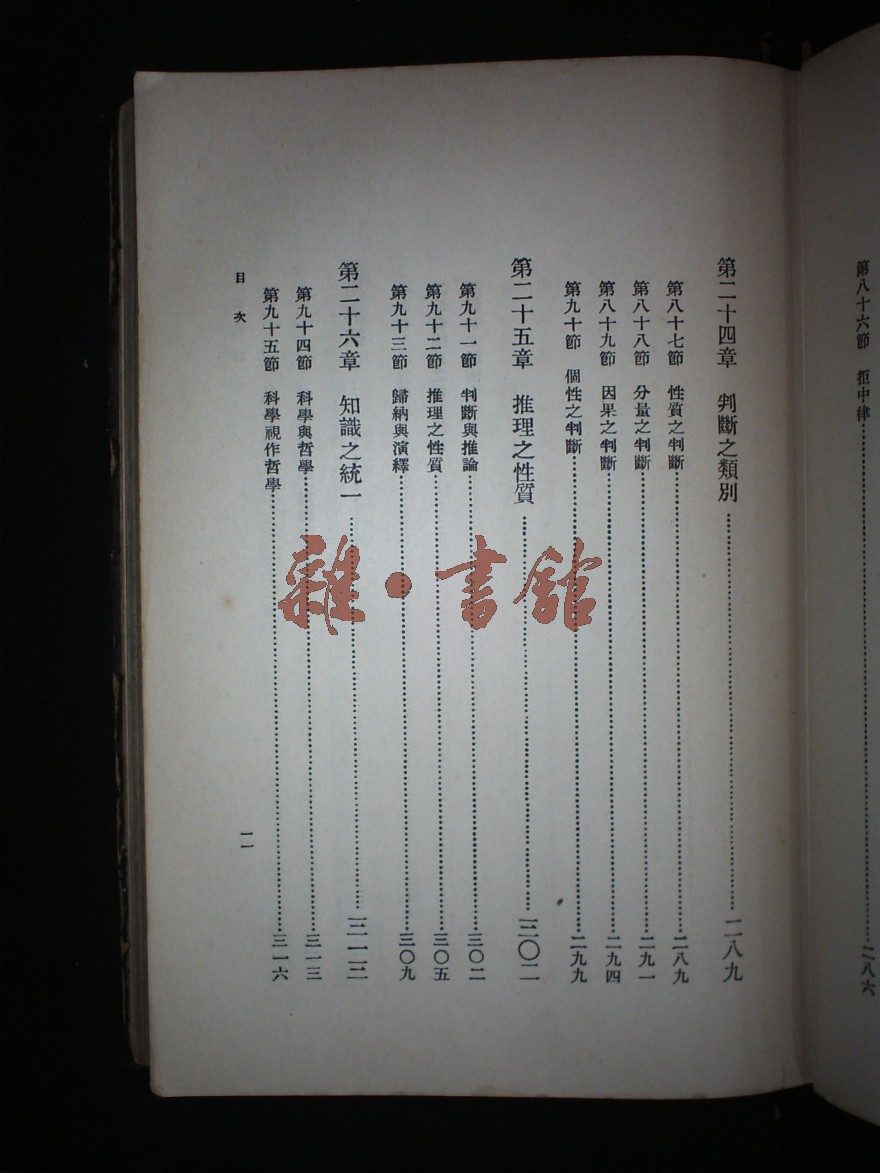 第八十六節　拒中律……二八六
第二十四章　判斷之類別……二八九
第八十七節　性質之判斷……二八九
第八十八節　分量之判斷……二九一
第八十九節　因果之判斷……二九四
第九十節　個性之判斷……二九九
第二十五章　推理之性質……三〇二
第九十一節　判斷與推論……三〇二
第九十二節　推理之性質……三〇五
第九十三節　歸納與演繹……三〇九
第二十六章　知識之統一……三一三
第九十四節　科學與哲學……三一三
第九十五節　科學視作哲學……三一六
目次
一一
雜·書館